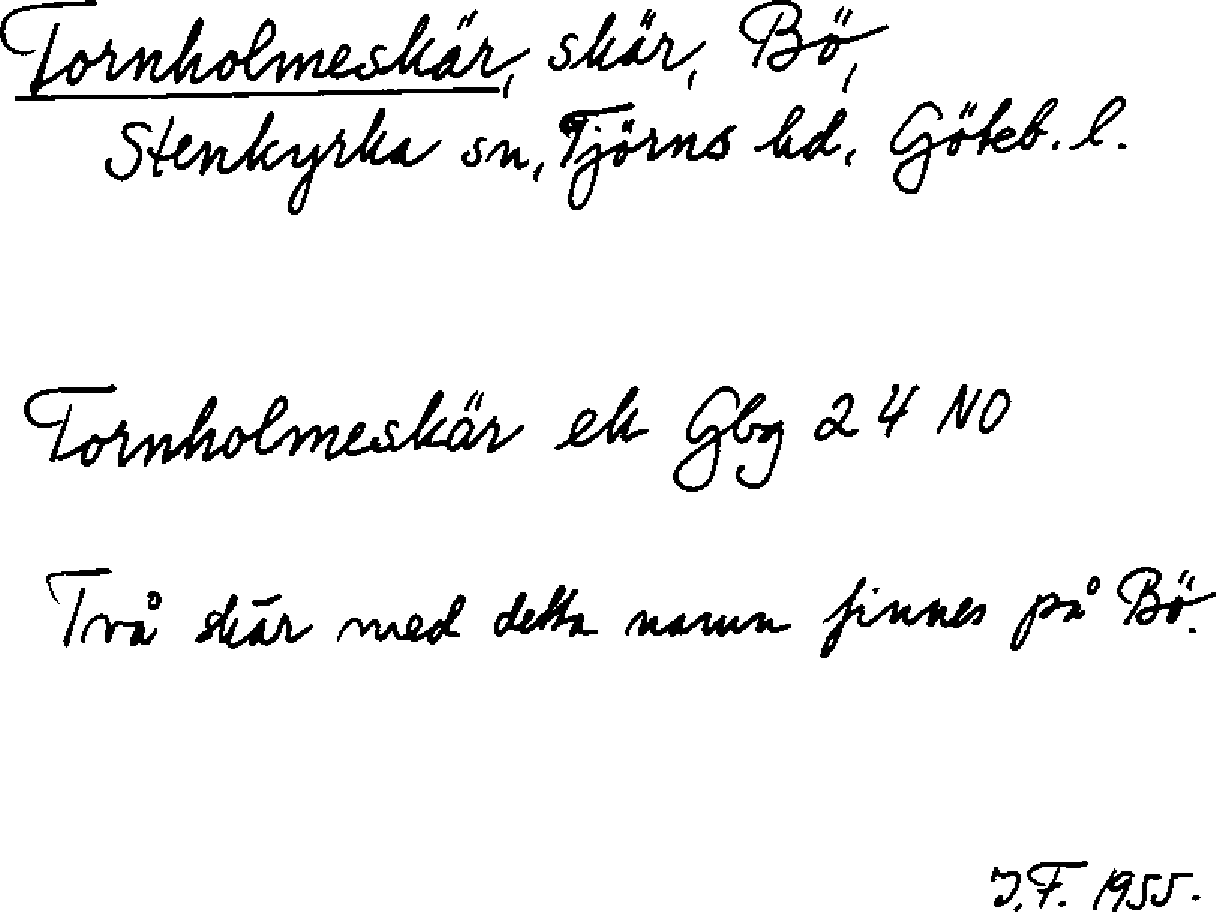 Tornholmeskär, skär, Bö,
Stenkyrka sn, Tjörns hd, Göteb. l.
Tornholmeskär ek Gbg 24 NO
Två skär med detta namn finnes på Bö.
J.F. 1955.